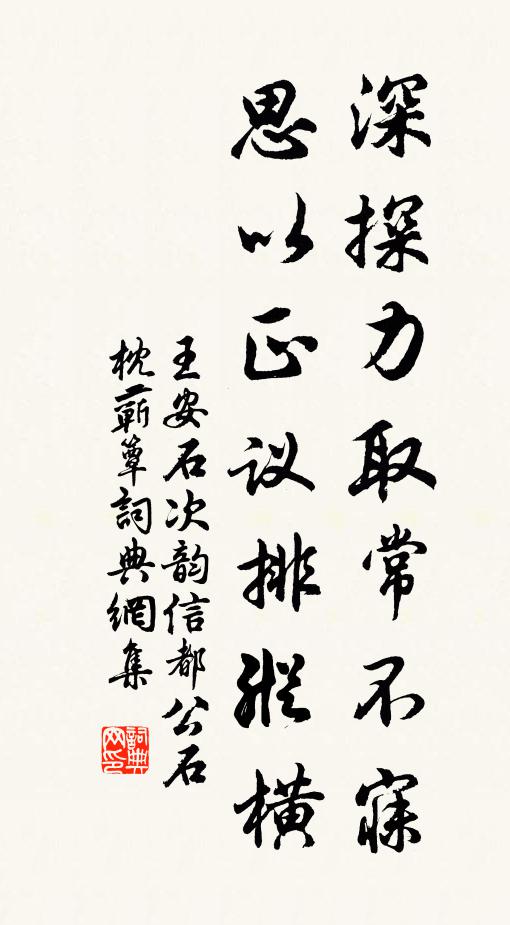 深探力取常不寐
思以正议排縱橫
王安石次韵信都公石
枕蘄簟詞典網集
詞典網印